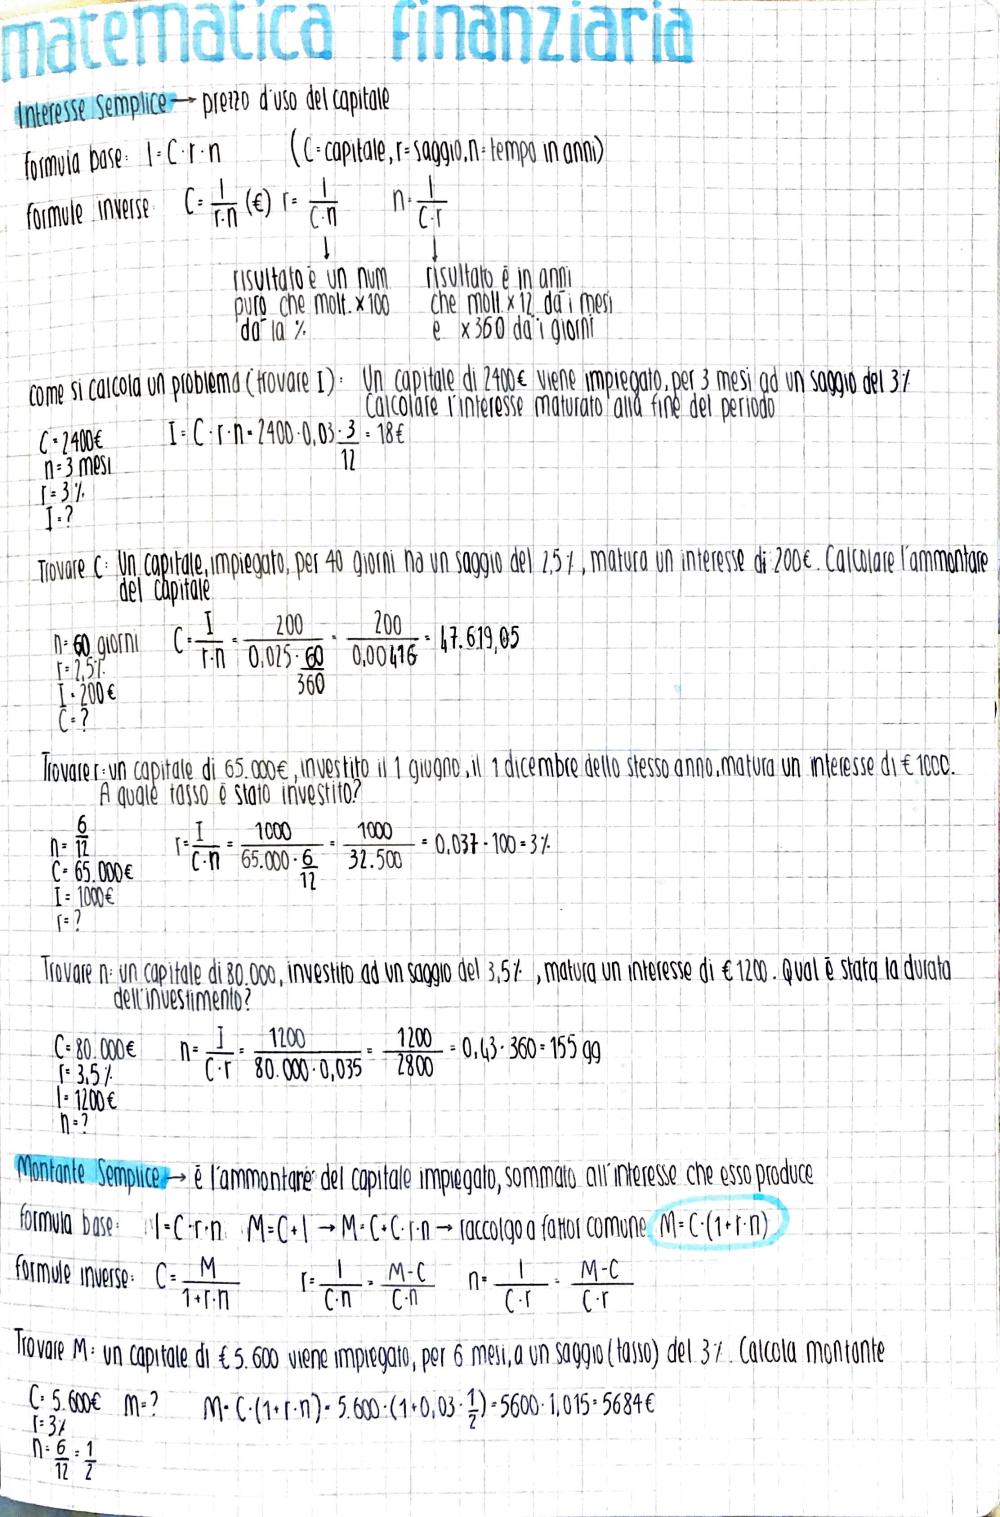 matematica finanziaria
Interesse semplice → prezzo d'uso del capitale
formula base: I=C·r·n (C=capitale, r=saggio, n=tempo in anni)
formule inverse: C= I/r·n (€) r= I/C·n n= I/C·r
↓ ↓
risultato è un num risultato è in anni
puro che molt. x100 che molt. x 12 dà i mesi
dà la % e x360 dà i giorni
come si calcola un problema (trovare I): Un capitale di 2400€ viene impiegato, per 3 mesi ad un saggio del 3%
Calcolare l'interesse maturato alla fine del periodo
C=2400€ I=C·r·n=2400·0,03·3/12=18€
n=3 mesi
r=3%
I=?
Trovare C: Un capitale, impiegato, per 40 giorni ha un saggio del 2,5%, matura un interesse di 200€. Calcolare l'ammontare
del capitale
n=60 giorni C= I/r·n = 200/0,025·60/360 = 200/0,00416 = 47.619,05
r=2,5%
I=200€
C=?
Trovare r: un capitale di 65.000€, investito il 1 giugno, il 1 dicembre dello stesso anno, matura un interesse di €1000.
A quale tasso è stato investito?
n=6/12 r= I/C·n = 1000/65.000·6/12 = 1000/32.500 = 0,037·100=3%
C=65.000€
I=1000€
r=?
Trovare n: un capitale di 80.000, investito ad un saggio del 3,5%, matura un interesse di €1200. Qual è stata la durata
dell'investimento?
C=80.000€ n= I/C·r = 1200/80.000·0,035 = 1200/2800 = 0,43·360=155 gg
r=3,5%
I=1200€
n=?
Montante Semplice → è l'ammontare del capitale impiegato, sommato all'interesse che esso produce
formula base: I=C·r·n M=C+I → M=C+C·r·n → raccolgo a fattor comune M=C·(1+r·n)
formule inverse: C= M/1+r·n r= I/C·n = M-C/C·n n= I/C·r = M-C/C·r
Trovare M: un capitale di €5.600 viene impiegato, per 6 mesi, a un saggio (tasso) del 3%. Calcola montante
C=5.600€ m=? M=C·(1+r·n)=5.600·(1+0,03·1/2)=5600·1,015=5684€
r=3%
n=6/12=1/2